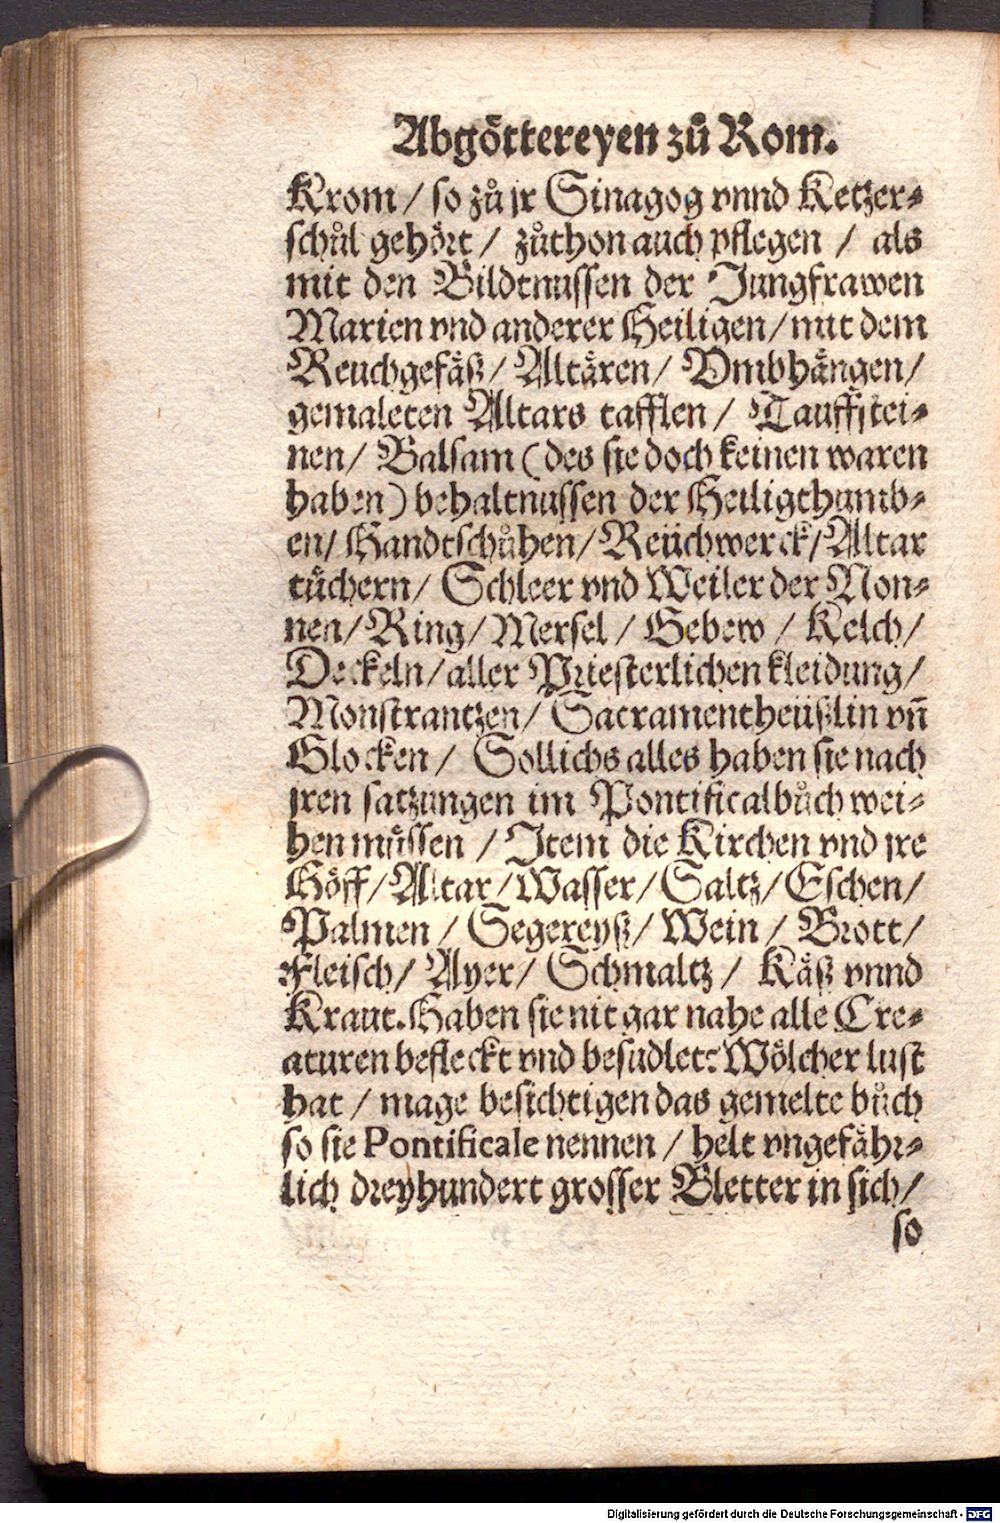 Abgöttereyen zů Rom.
Krom / so zů jr Sinagog vnnd Ketzer⸗
schůl gehört / zůthon auch pflegen / als
mit den Bildtnussen der Jungfrawen
Marien vnd anderer Heiligen / mit dem
Reuchgefäß / Altären / Vmbhängen /
gemaleten Altars tafflen / Tauffstei⸗
nen / Balsam ( des sie doch keinen waren
haben ) behaltnussen der Heiligthumb⸗
en / Handtschůhen / Reüchwerck / Altar
tüchern / Schleer vnd Weiler der Non⸗
nen / Ring / Mersel / Gebew / Kelch /
Deckeln / aller Priesterlichen kleidung /
Monstrantzen / Sacramentheüßlin vñ
Glocken / Sollichs alles haben sie nach
jren satzungen im Pontificalbůch wei⸗
hen müssen / Item die Kirchen vnd jre
Höff / Altar / Wasser / Saltz / Eschen /
Palmen / Segereyß / Wein / Brott /
Fleisch / Ayer / Schmaltz / Käß vnnd
Kraut. Haben sie nit gar nahe alle Cre⸗
aturen befleckt vnd besudlet? Wölcher lust
hat / mage besichtigen das gemelte bůch
so sie Pontificale nennen / helt vngefähr⸗
lich dreyhundert grosser Bletter in sich /
so
Digitalisierung gefördert durch die Deutsche Forschungsgemeinschaft - DFG